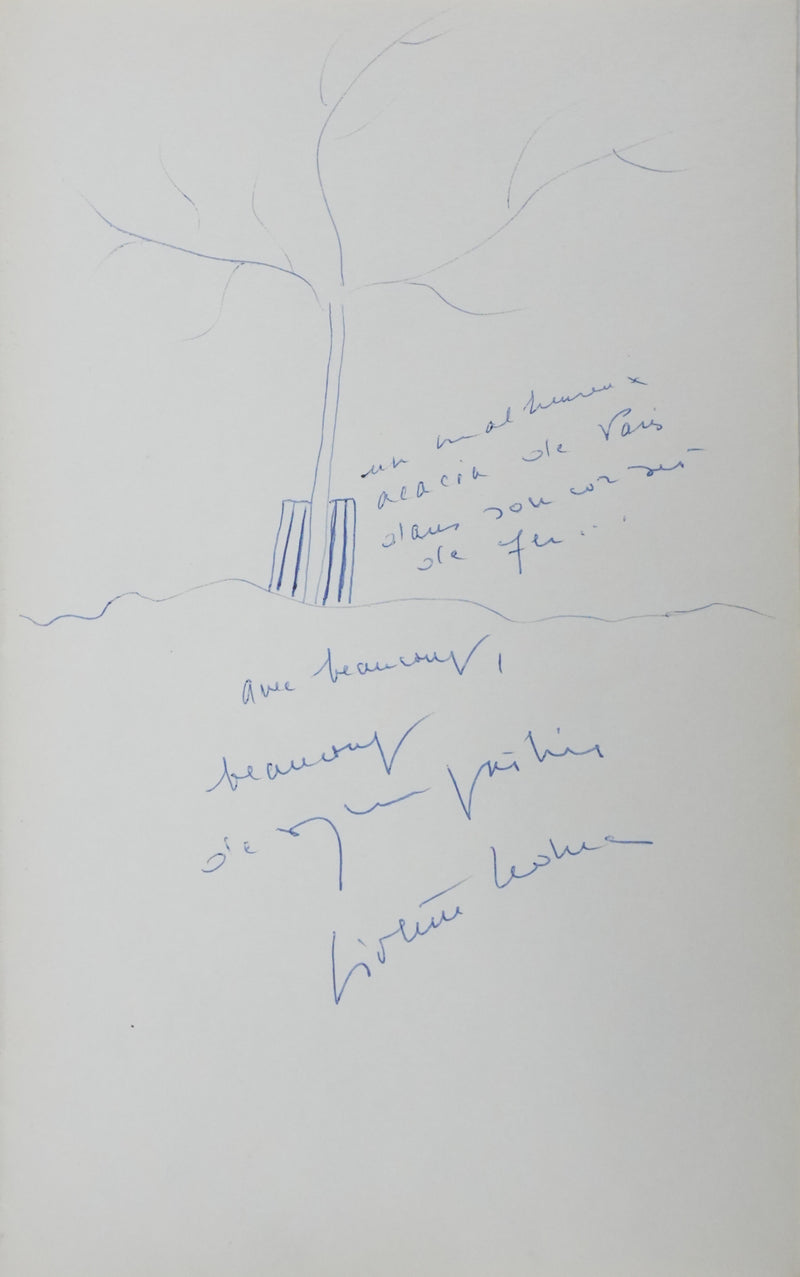 un malheureux
acacia de Paris
dans son corset
de fer...
avec beaucoup,
beaucoup
de sympathie
Violette Leduc